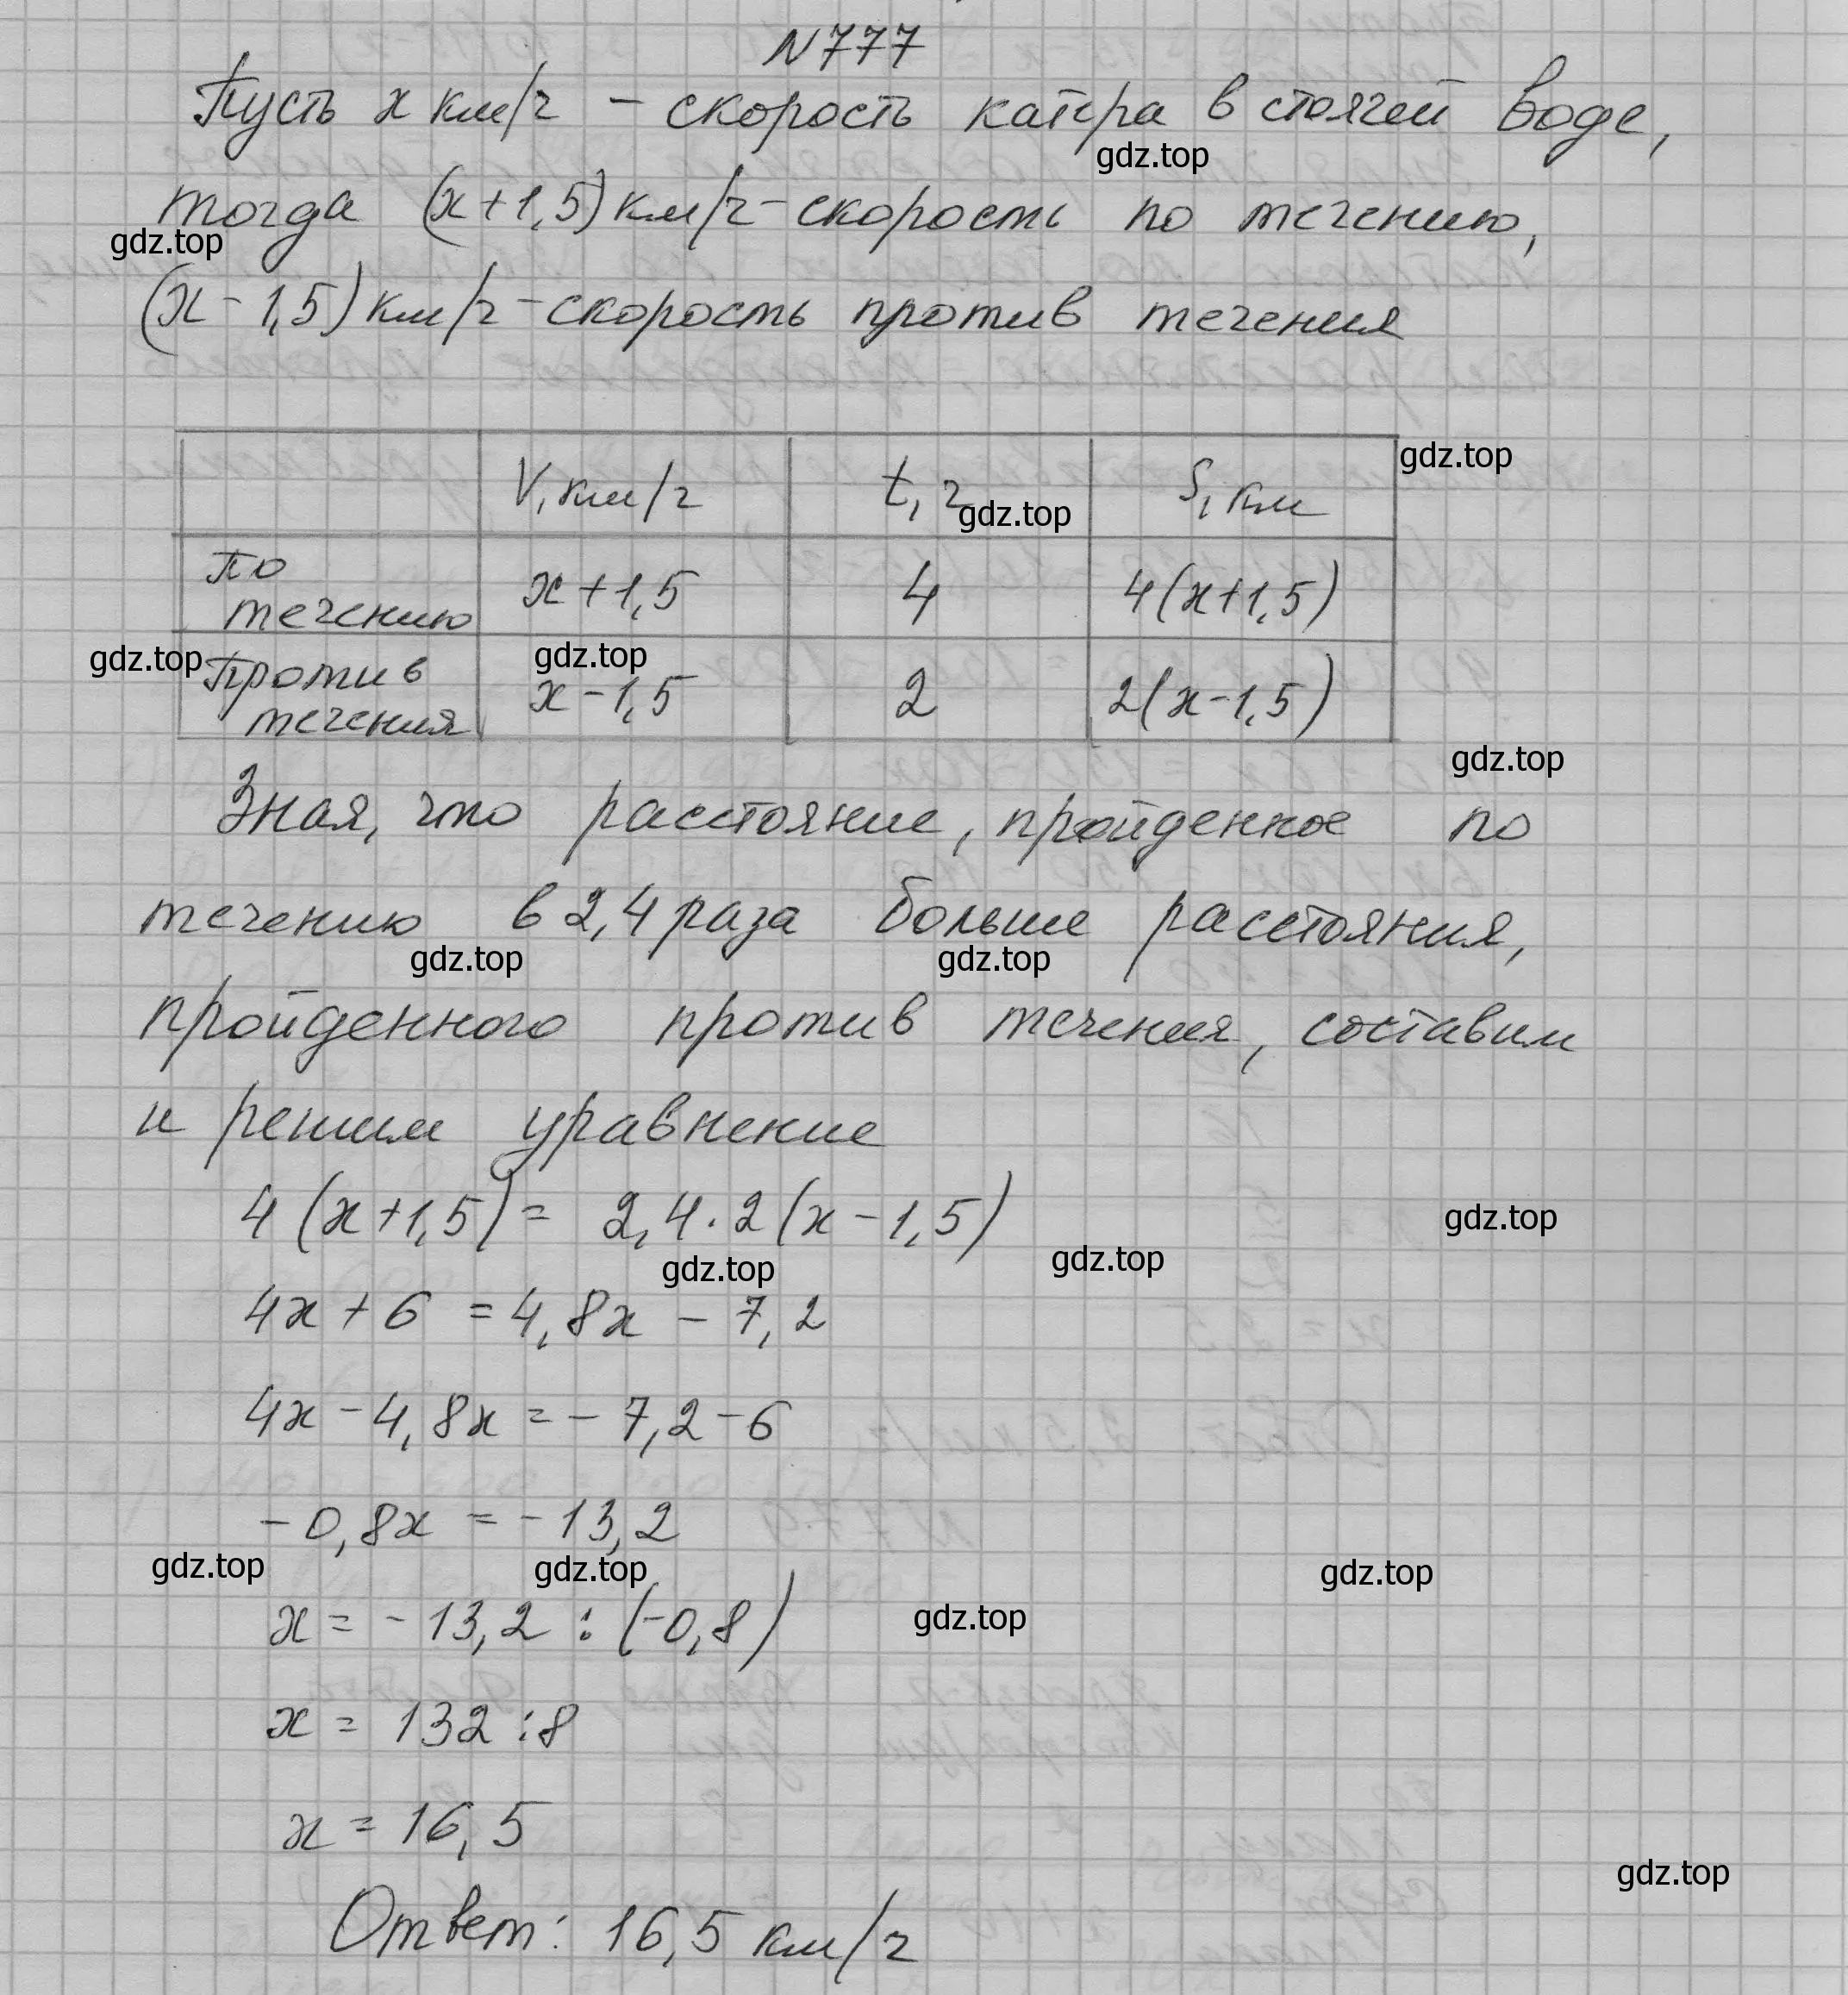 N777
Пусть x км/ч - скорость катера в стоячей воде,
gdz.top
тогда (x+1,5) км/ч - скорость по течению,
gdz.top
(x-1,5) км/ч - скорость против течения
gdz.top
V, км/ч t, ч S, км
gdz.top
По течению x+1,5 4 4(x+1,5)
gdz.top gdz.top
Против течения x-1,5 2 2(x-1,5)
gdz.top
Зная, что расстояние, пройденное по
течению в 2,4 раза больше расстояния,
gdz.top gdz.top
пройденного против течения, составим
и решим уравнение
4(x+1,5) = 2,4·2(x-1,5)
gdz.top
gdz.top gdz.top
4x+6 = 4,8x - 7,2
4x-4,8x = -7,2-6
-0,8x = -13,2
gdz.top gdz.top gdz.top
x = -13,2 : (-0,8)
gdz.top
x = 132 : 8
x = 16,5
gdz.top
Ответ: 16,5 км/ч